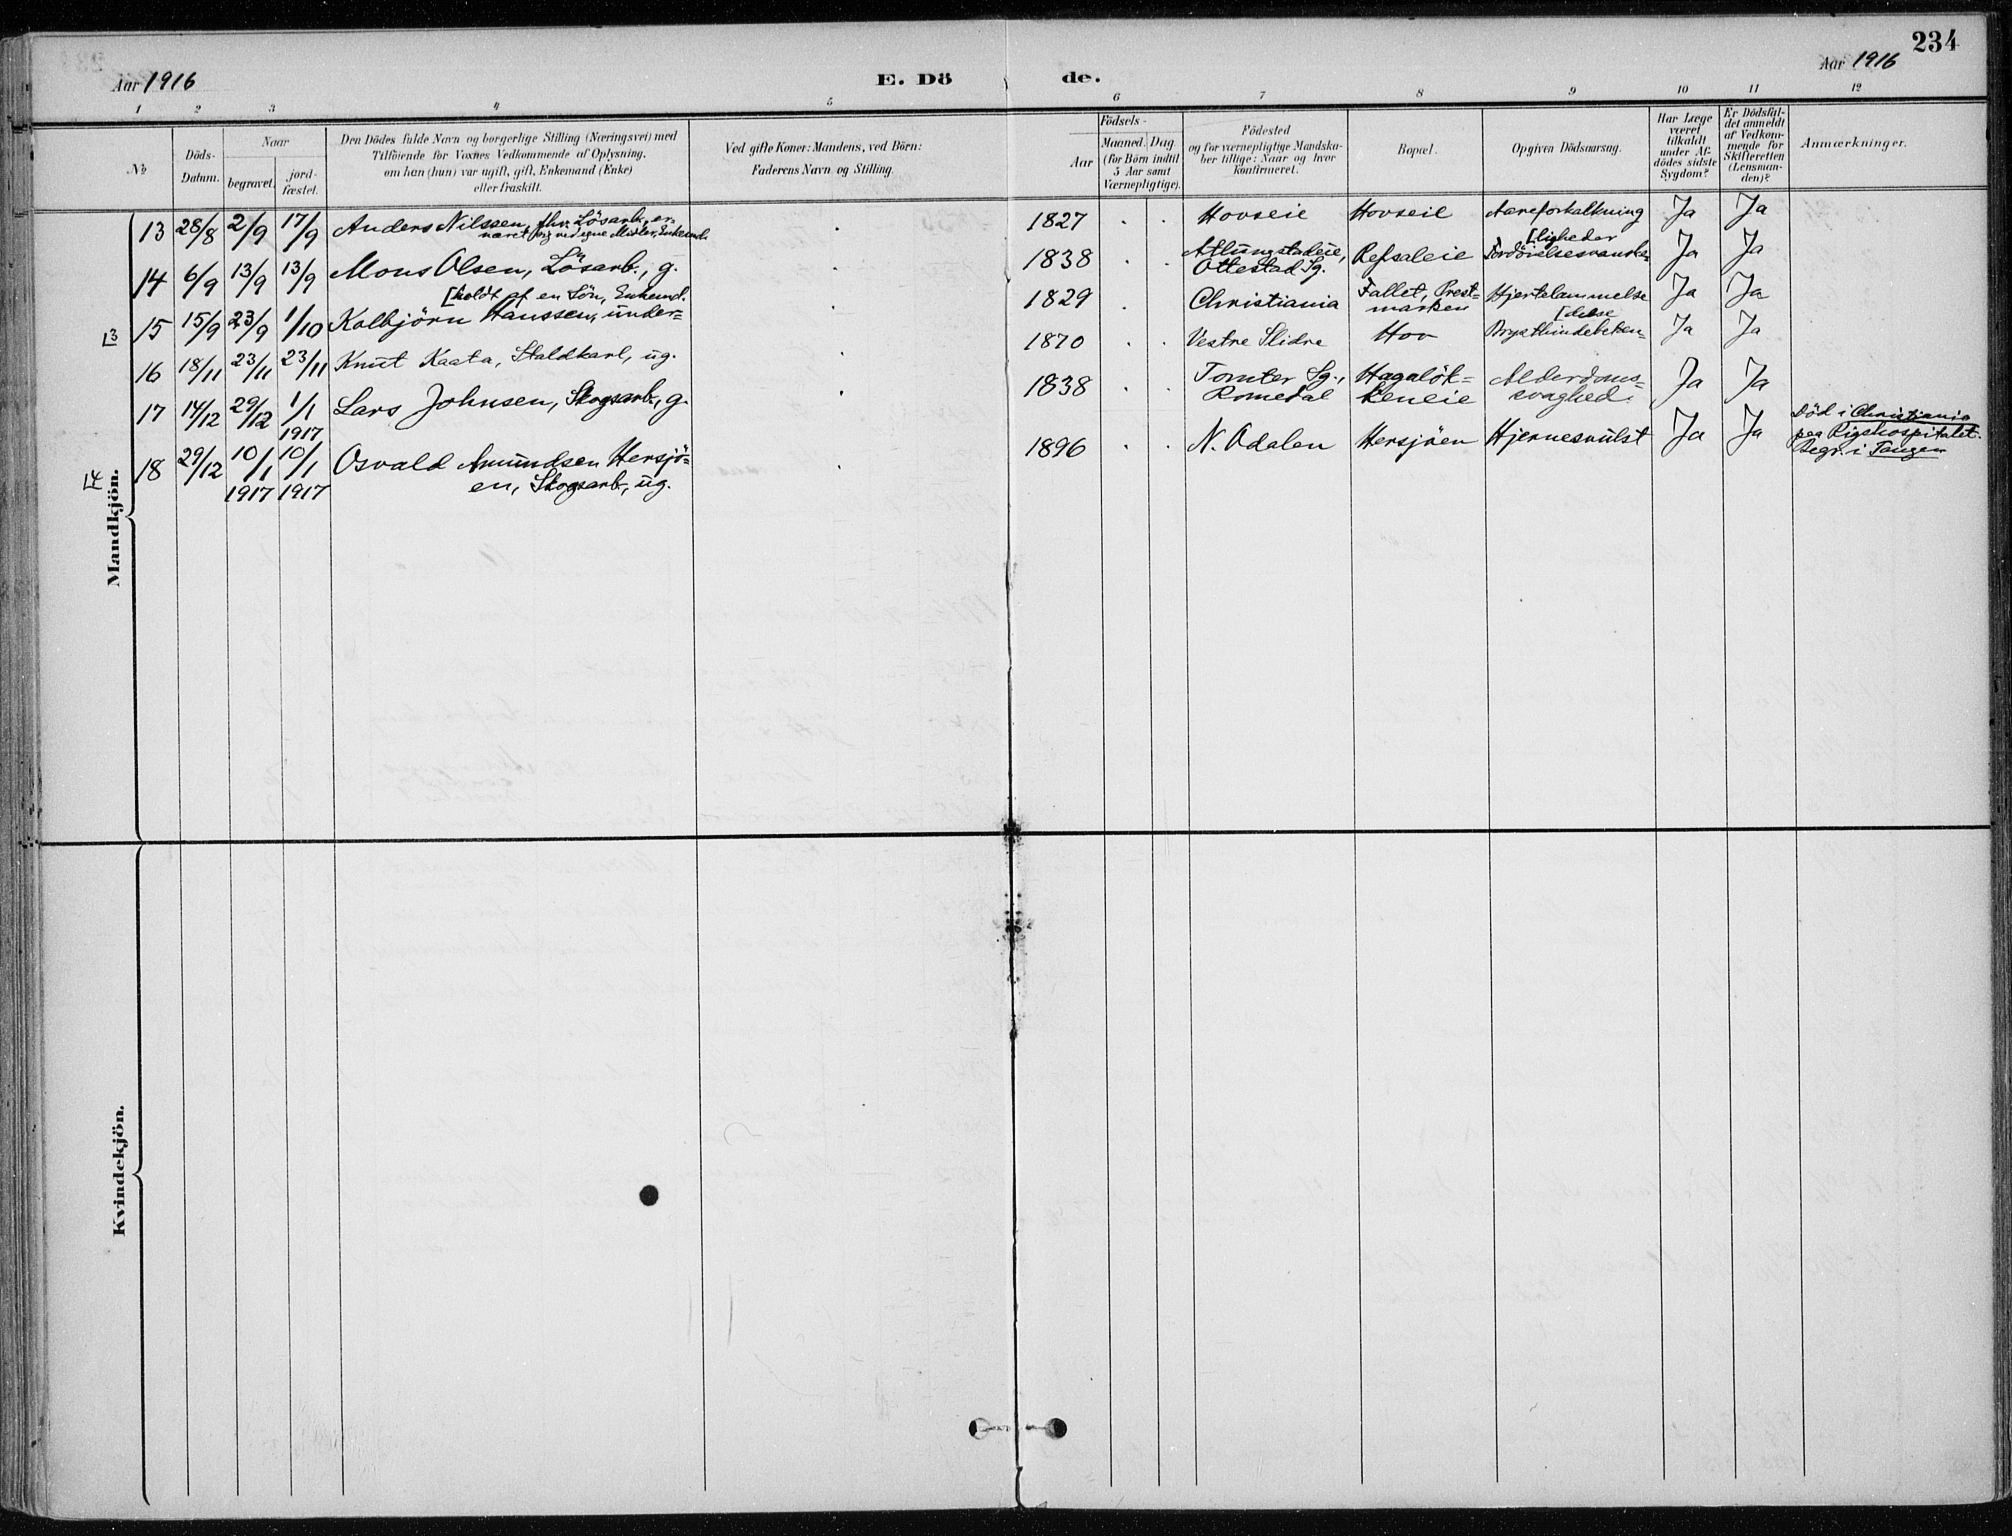 234
Aar 1916
E. Dö de.
Aar 1916
1 2 3 4 5 6 7 8 9 10 11 12
№
Döds-
Datum.
Naar
begravet.
jord-
fæstet.
Den Dödes fulde Navn og borgerlige Stilling (Næringsvei) med
Tilföiende for Voxnes Vedkommende af Oplysning,
om han (hun) var ugift, gift, Enkemand (Enke)
eller fraskilt.
Ved gifte Koner: Mandens, ved Börn:
Faderens Navn og Stilling.
Födsels-
Aar
Maaned. Dag.
(for Börn indtil
5 Aar samt
Værnepligtige).
Födested
og for værnepligtige Mandska-
ber tillige: Naar og hvor
konfirmeret.
Bopæl.
Opgiven Dödsaarsag.
Har Læge
været
tilkaldt
under Af-
dödes sidste
Sygdom?
Er Dödsfal-
det anmeldt
af Vedkom-
mende for
Skifteretten
(Lensman-
den)?
Anmærkninger.
Mandkjön.
13 28/8 2/9 17/9 Anders Nilssen, fhv. Lösarb., er-
næret sig ved egne Midler, Enkemd. 1827 Hovseie Hovseie Aareforkalkning Ja Ja
14 6/9 13/9 13/9 Mons Olsen, Lösarb., g. 1838 Atlungstadeie,
Ottestad Sg. Refsaleie Fordöielsesvanske-
[ligheder Ja Ja
L3 15 15/9 23/9 1/10 Kolbjörn Hanssen, under-
[holdt af en Sön, Enkemd. 1829 Christiania Fallet, Prest-
marken Hjertelammelse Ja Ja
16 18/11 23/11 23/11 Knut Kaata, Staldkarl, ug. 1870 Vestre Slidre Hov Brysthindebeten-
[delse Ja Ja
17 14/12 29/12 1/1
1917 Lars Johnsen, Skogsarb., g. 1838 Tomter Sg.,
Romedal Hagalök-
keneie Alderdoms-
svaghed. Ja Ja
L4 18 29/12 10/1
1917 10/1
1917 Osvald Amundsen Hersjö-
en, Skogsarb., ug. 1896 N. Odalen Hersjöen Hjernesvulst Ja Ja Död i Christiania
paa Rigshospitalet.
Begr. i Tangen
Kvindekjön.